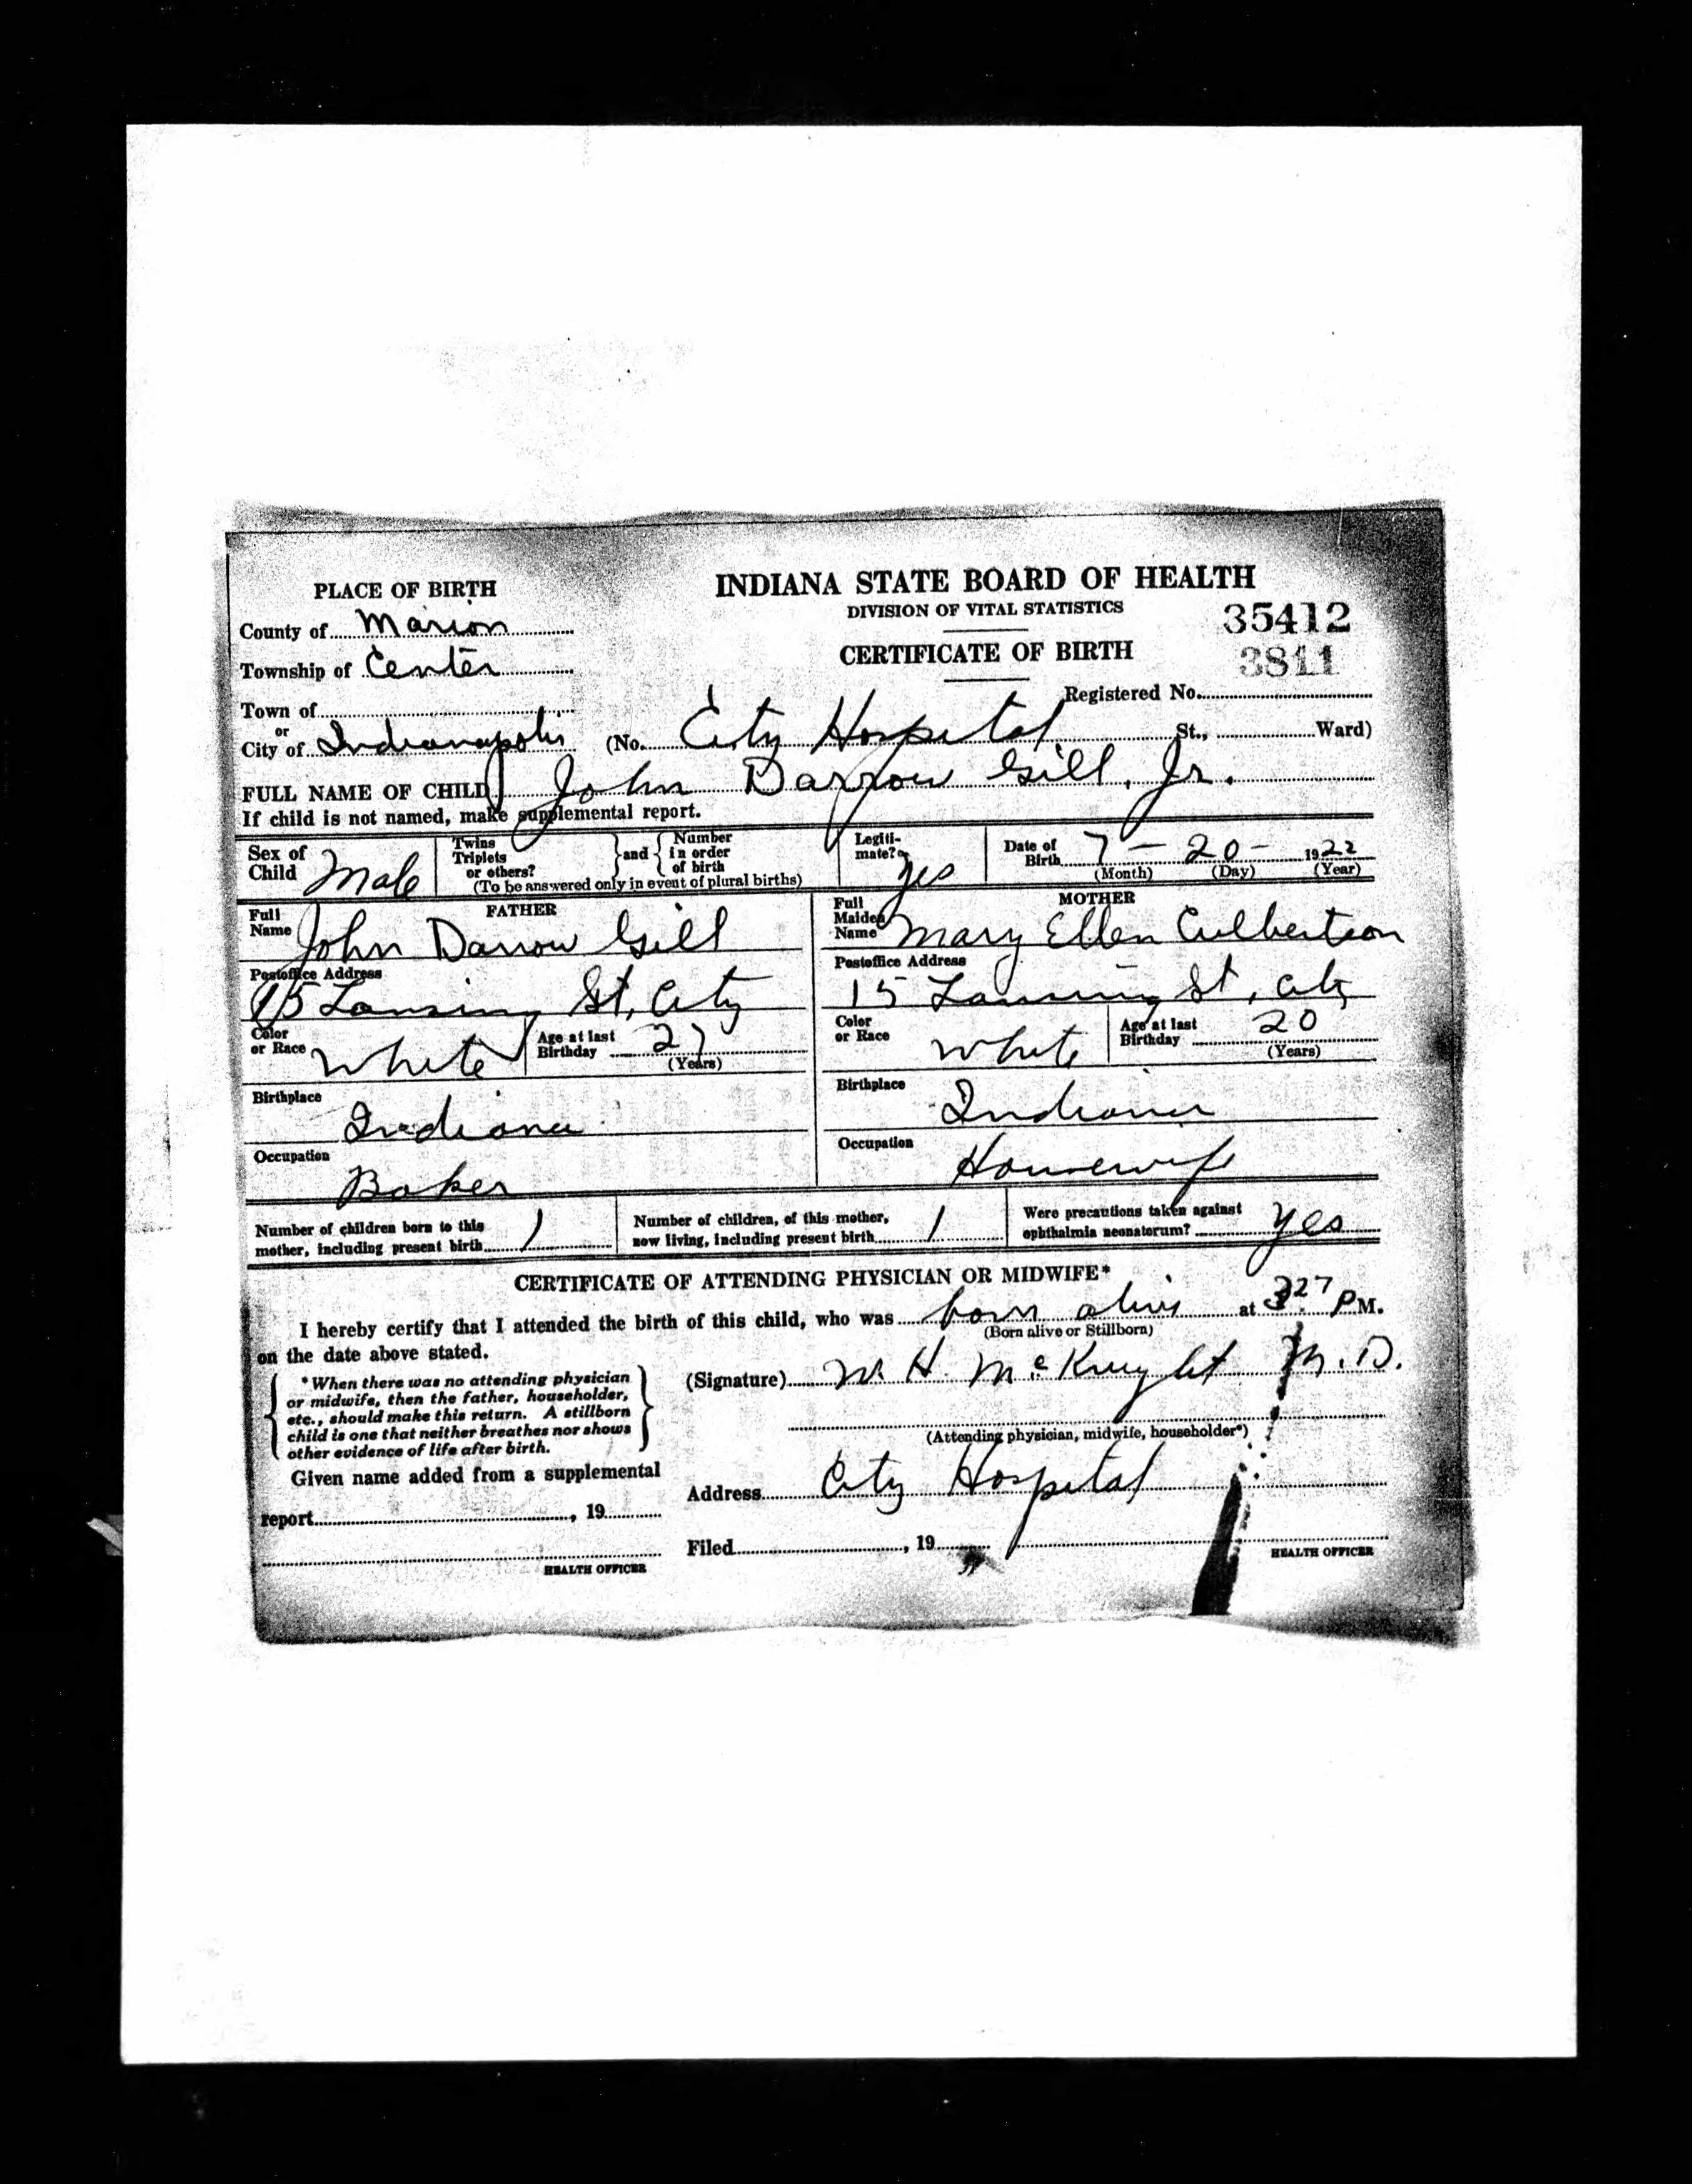 INDIANA STATE BOARD OF HEALTH
DIVISION OF VITAL STATISTICS
CERTIFICATE OF BIRTH
35412
3811
Registered No.
PLACE OF BIRTH
County of Marion
Township of Center
Town of
or
City of Indianapolis (No. City Hospital St., Ward)
FULL NAME OF CHILD John Darrow Gill, Jr.
If child is not named, make supplemental report.
Sex of Child Male
Twins Triplets or others? } and { Number in order of birth
(To be answered only in event of plural births)
Legiti-mate? Yes
Date of Birth 7 - 20 - 1922
(Month) (Day) (Year)
FATHER
Full Name John Darrow Gill
Postoffice Address
15 Lansing St, City
Color or Race White
Age at last Birthday 27
(Years)
Birthplace
Indiana
Occupation
Baker
MOTHER
Full Maiden Name Mary Ellen Culbertson
Postoffice Address
15 Lansing St, City
Color or Race White
Age at last Birthday 20
(Years)
Birthplace
Indiana
Occupation
Housewife
Number of children born to this mother, including present birth 1
Number of children, of this mother, now living, including present birth 1
Were precautions taken against ophthalmia neonatorum? yes
CERTIFICATE OF ATTENDING PHYSICIAN OR MIDWIFE*
I hereby certify that I attended the birth of this child, who was born alive at 3:27 P M.
(Born alive or Stillborn)
on the date above stated.
* When there was no attending physician
or midwife, then the father, householder,
etc., should make this return. A stillborn
child is one that neither breathes nor shows
other evidence of life after birth.
(Signature) W. H. McKnyght M.D.
(Attending physician, midwife, householder*)
Given name added from a supplemental
report , 19
HEALTH OFFICER
Address City Hospital
Filed , 19
HEALTH OFFICER